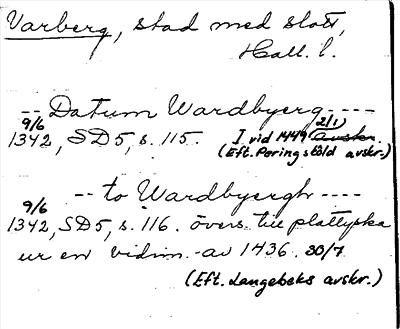 Varberg, stad med slott,
Hall. l.
-- Datum Wardbyerg ----
9/6 1342, SD5, s. 115. I vid 1449 2/1) avskr.
(Eft. Peringskiöld avskr.)
-- to Wardbyergh ----
9/6 1342, SD5, s. 116. övers. till plattyska
ur en vidim. av 1436. 30/7
(Eft. Langebeks avskr.)